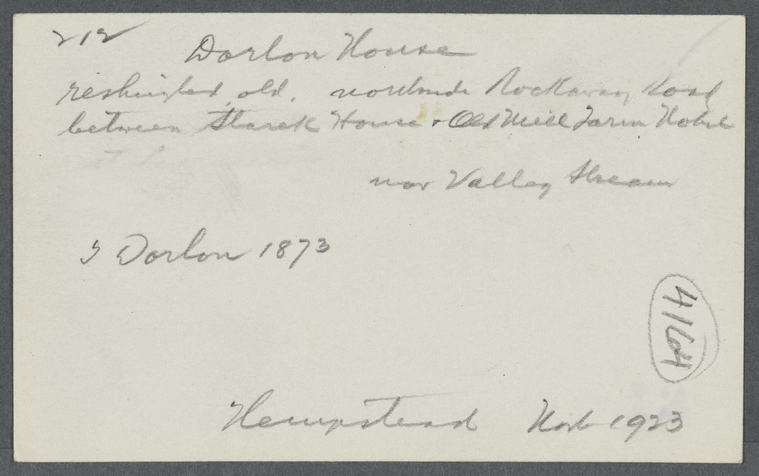 212 Dorlon House
reshingled, old. northside Rockaway Road
between Starek House & Old Mill Farm Hotel
nor Valley Stream
J Dorlon 1873
4164
Hempstead Nov 1923